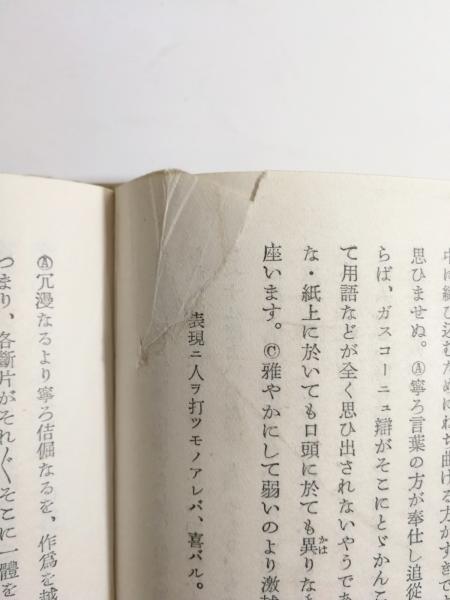 中に織り込むためにねぢ曲げる方がすきで
思ひませぬ。Ⓐ寧ろ言葉の方が奉仕し追從
らば、ガスコーニュ辯がそこにとゞかんこ
て用語などが全く思ひ出されないやうであ
な・紙上に於いても口頭に於ても異りな
かは
座います。Ⓒ雅やかにして弱いのより激越
表現ニ人ヲ打ツモノアレバ、喜バル。
Ⓐ冗漫なるより寧ろ佶倔なるを、作爲を越
つまり、各斷片がそれ〲そこに一體を